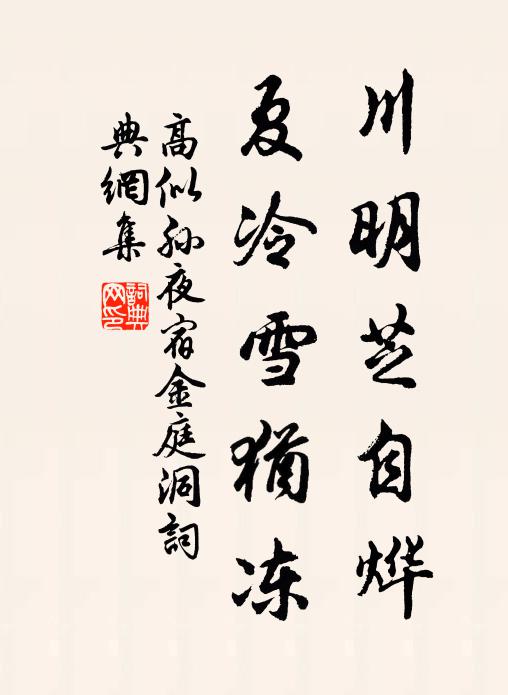 川明芝自烨
夏冷雪猶冻
高似孙夜宿金庭洞詞
典網集
詞典網印